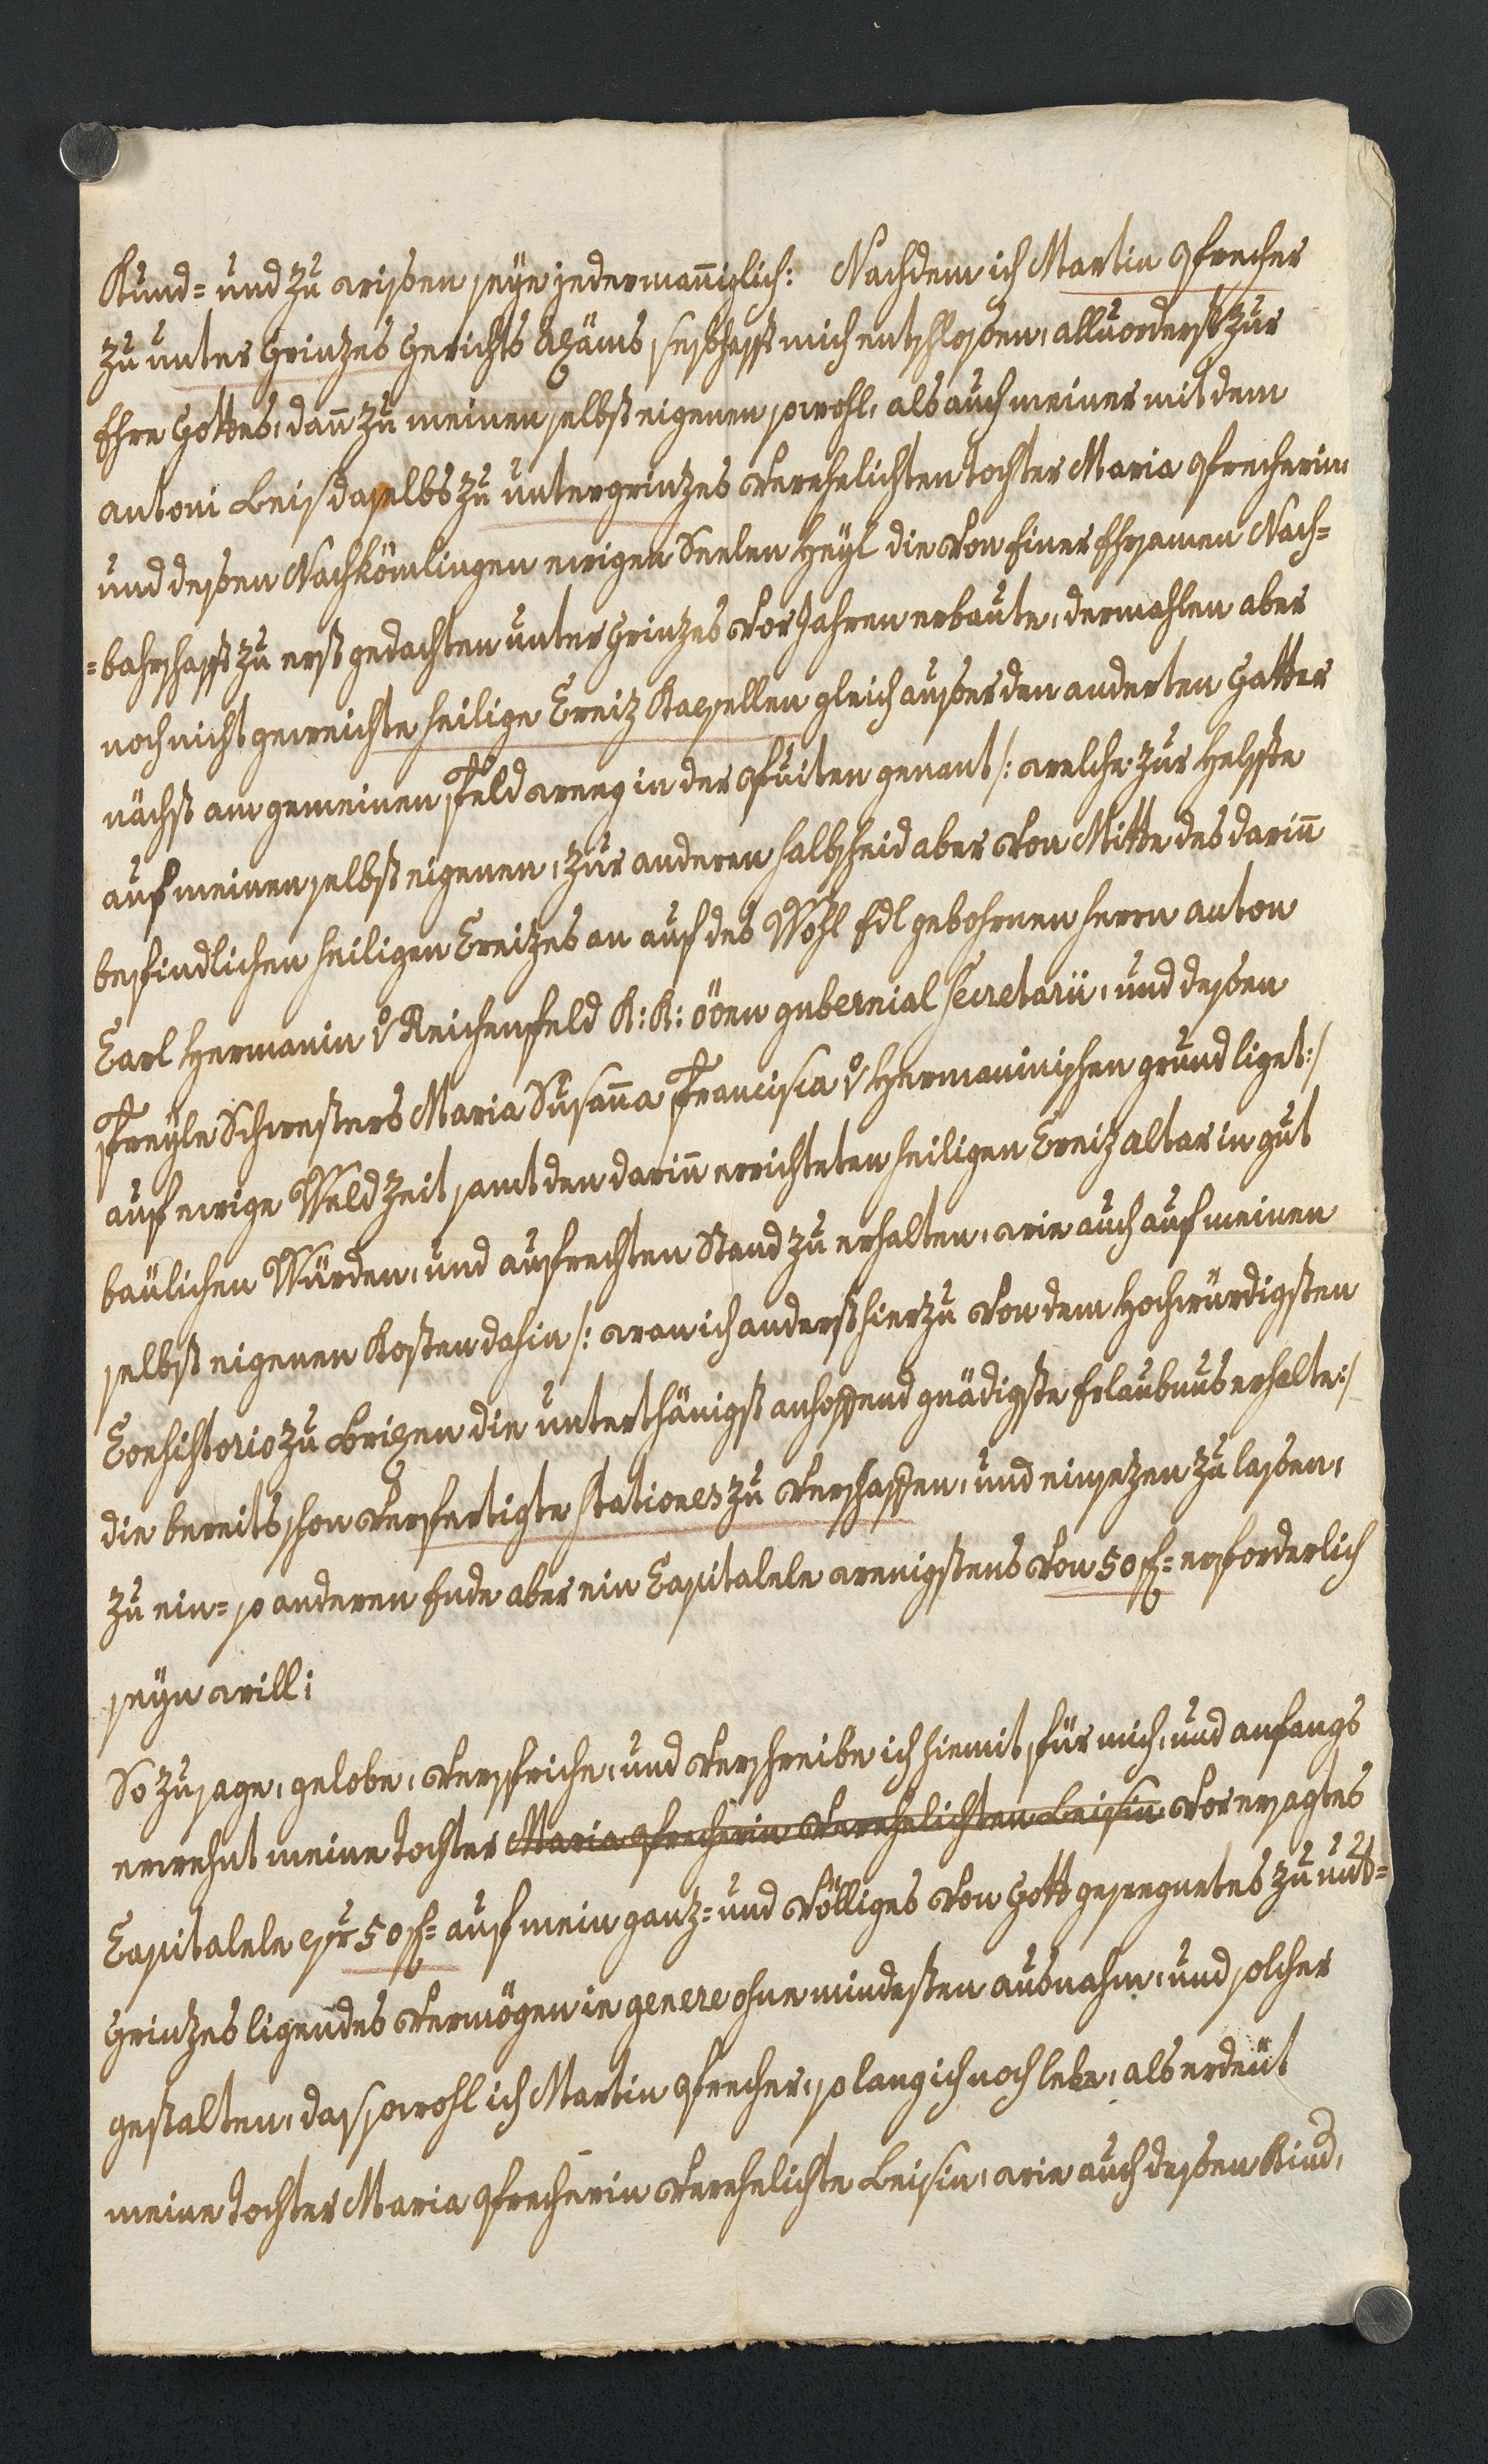 Kund= und zu wissen seye jedermaniglich: Nachdem ich Martin Pfrecher
zu unter Grinzes Gerichts Axäms seßhafft mich entschlossen, allvorderst zur
Ehre Gottes, dan zu meinen selbst eigenen sowohl, als auch meiner mit dem
antoni Leis daselbs zu untergrinzes Verehelichten tochter Maria Pfrecherin
und dessen Nachkömlingen ewigen Seelen Heyl die Von Einer Ehrsamen Nach=
=bahrschafft zu erst gedachten unter Grinzes Vor Jahren erbaute, dermahlen aber
noch nicht geweichte heilige Creiz Kapellen gleich ausser den anderten Gatter
nächst am gemeinen Feld weeg in der Pfuiten genant /: welche zur Helffte
auf meinen selbst eigenen, zur anderen halbscheid aber Von Mitte des darin
befindlichen heiligen Creizes an auf des Wohl Edl gebohrnen Herrn anton
Carl Hermanin v Reichenfeld K: K: ööen gubernial Secretarii, und dessen
Freyle Schwesters Maria Susana Francisca v Hermaninischen grund liget :/
auf ewige Weld Zeit samt den darin errichteten heiligen Creiz altar in gut
baulichen Würden, und aufrechten Stand zu erhalten, wie auch auf meinen
selbst eigenen Kosten dahin /: wan ich anderst hierzu Von dem Hochwürdigsten
Consistorio zu Brixen die unterthänigst anhoffend gnädigste Erlaubnus erhalte :/
die bereits schon Verfertigte Stationes zu Verschaffen, und einsezen zu lassen,
zu ein= so anderen Ende aber ein Capitalele wenigstens Von 50 f= erforderlich
seyn will;
So zusage, gelobe, Verspriche, und Verschreibe ich hiemit für mich, und anfangs
erwehnt meine tochter Maria Pfrecherin Verehelichten Leisin Vorersagtes
Capitalele per 50 f= auf mein ganz= und Völliges Von Gott gesegnetes zu unt=
Grinzes ligendes Vermögen in genere ohne mindesten ausnahm, und solcher
gestalten, das sowohl ich Martin Pfrecher, so lang ich noch lebe, als erdeüt
meine tochter Maria Pfrecherin Verehelichte Leisin, wie auch dessen Kind,